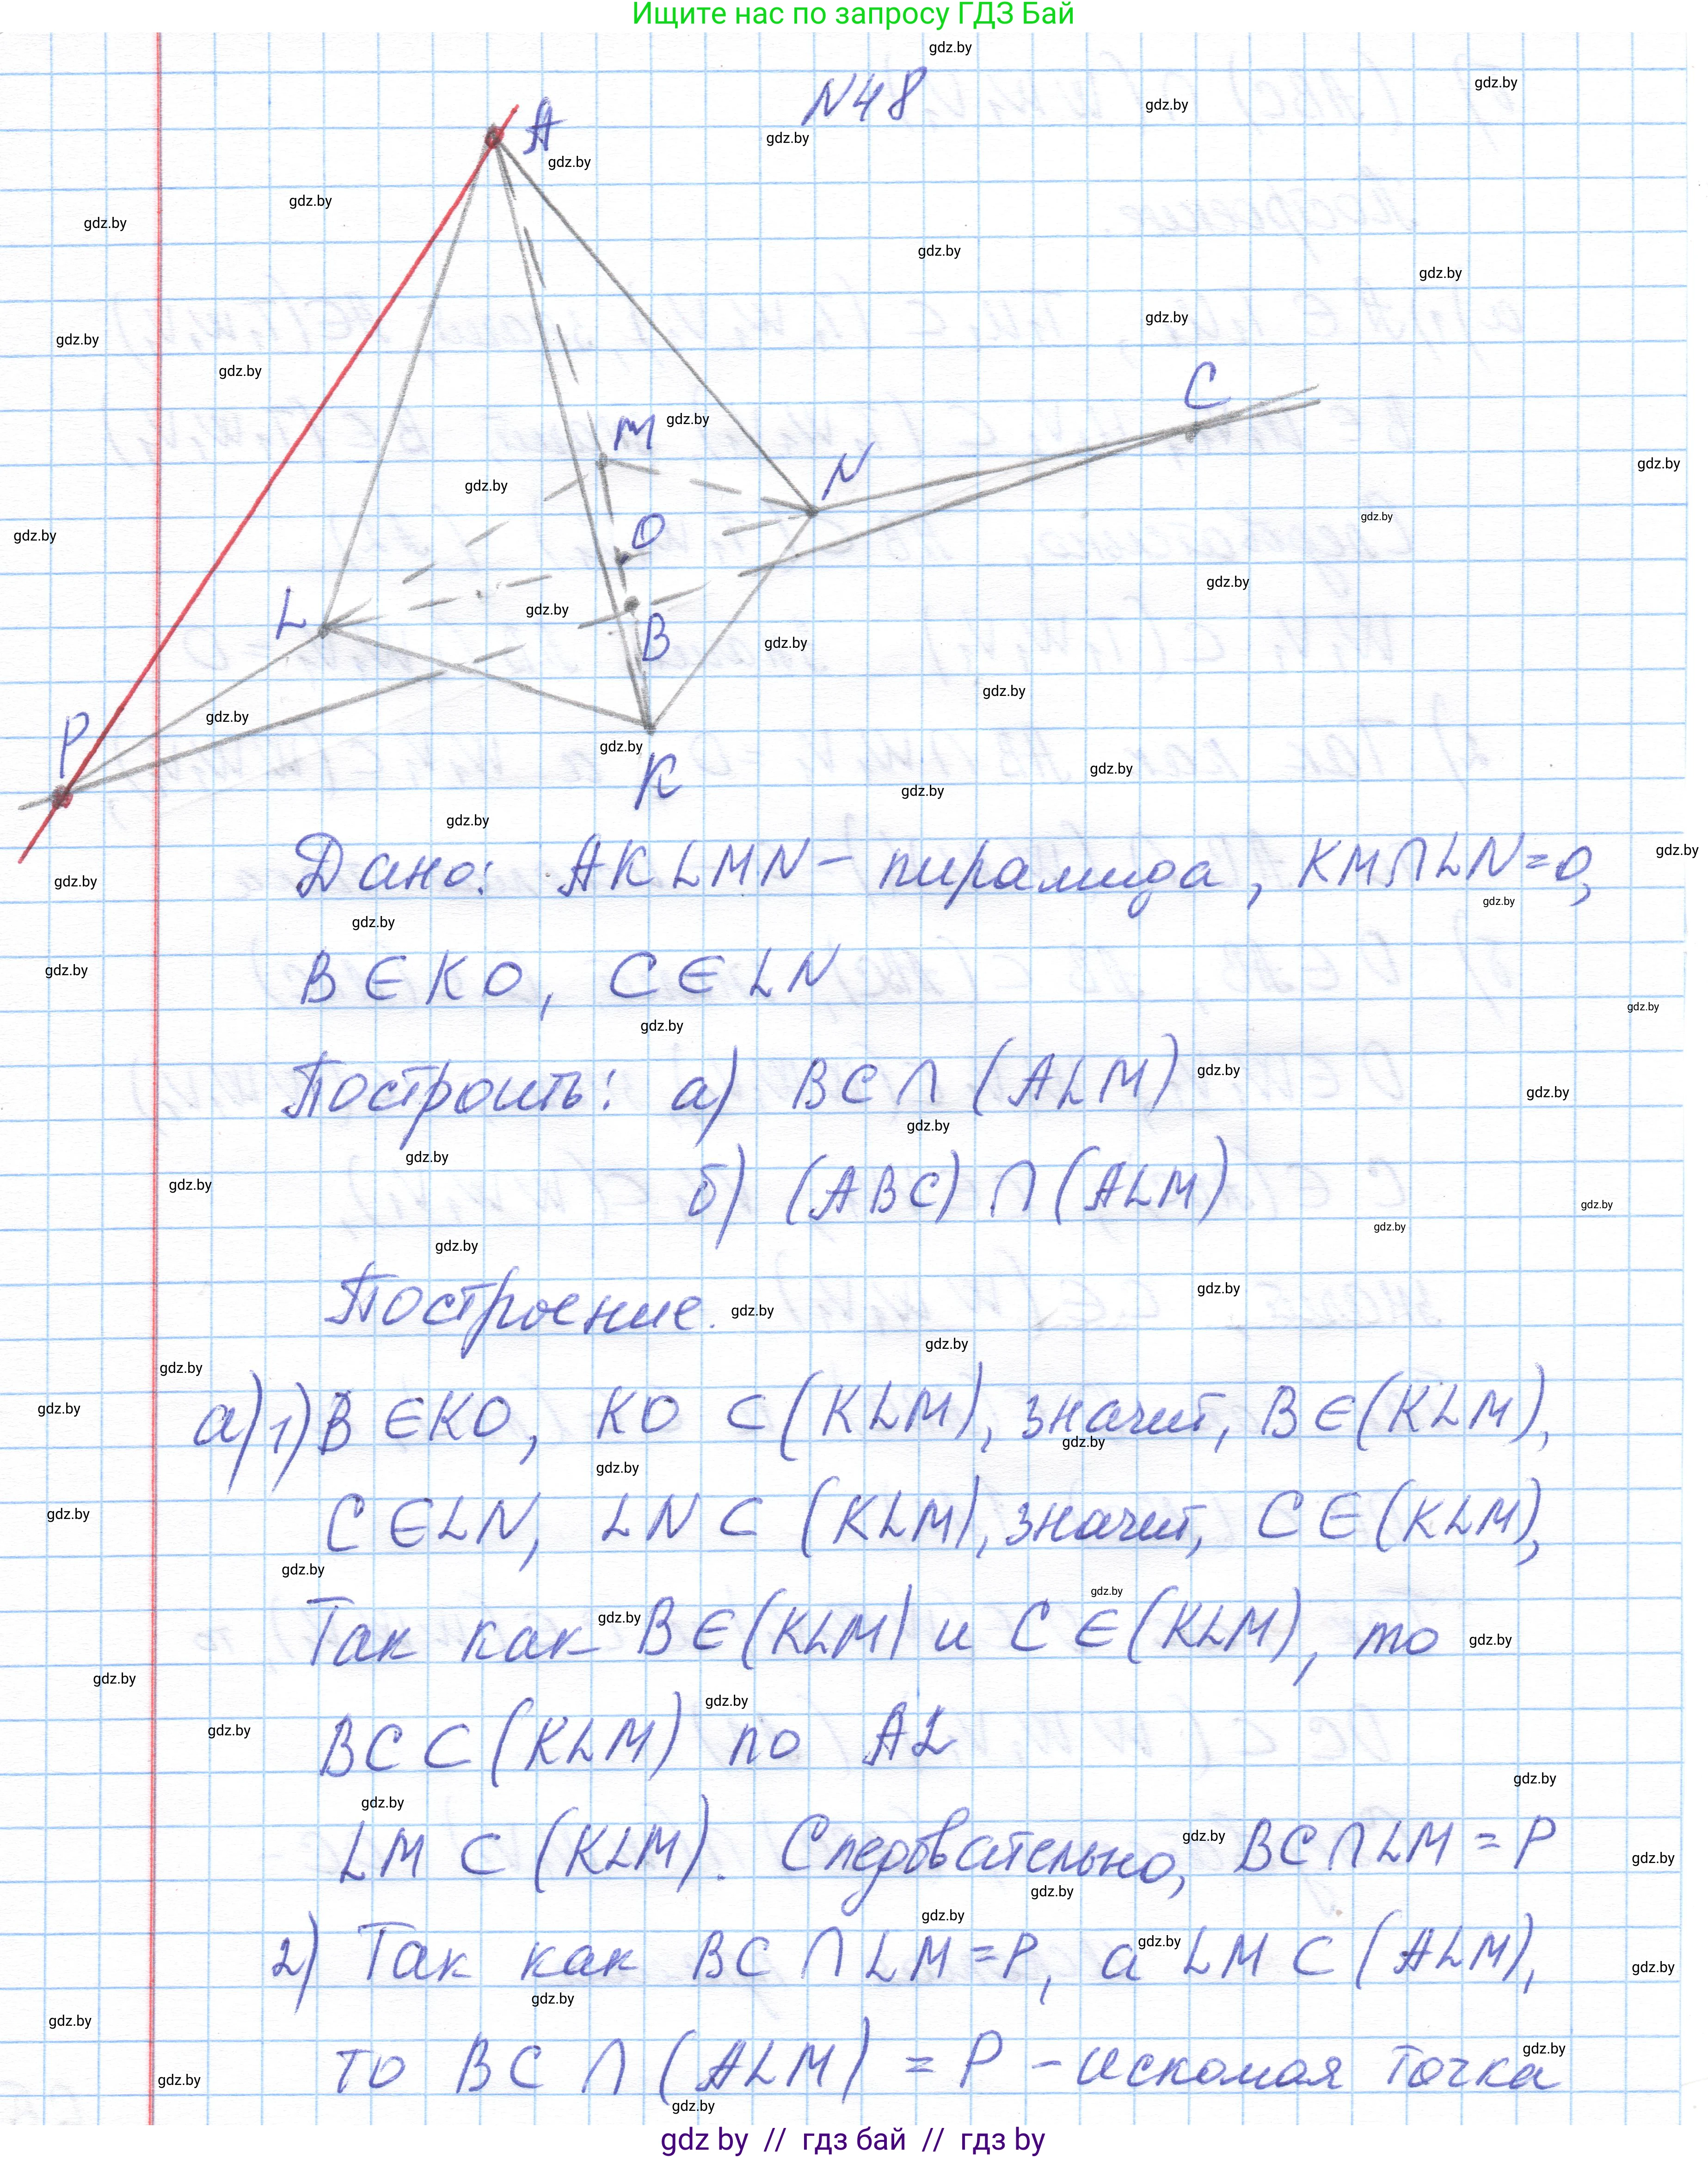 Ищите нас по запросу ГДЗ Бай
N48
A
M
N
C
O
L
B
P
K
Дано: AKLMN – пирамида, KM∩LN=O,
B∈KO, C∈LN
Построить: а) BC∩(ALM)
б) (ABC)∩(ALM)
Построение.
а)1) B∈KO, KO⊂(KLM), значит, B∈(KLM),
C∈LN, LN⊂(KLM), значит, C∈(KLM),
Так как B∈(KLM) и C∈(KLM), то
BC⊂(KLM) по А2
LM⊂(KLM). Следовательно, BC∩LM=P
2) Так как BC∩LM=P, а LM⊂(ALM),
то BC∩(ALM)=P – искомая точка
gdz by // гдз бай // гдз by